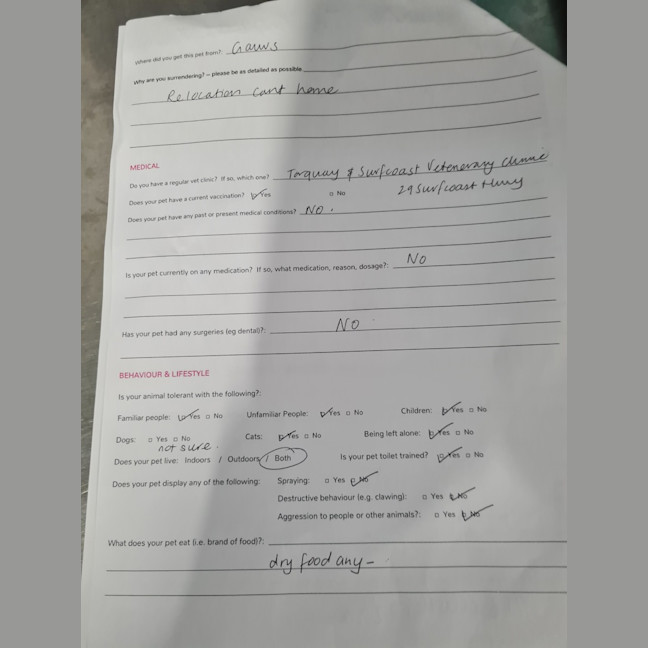 Where did you get this pet from?: Gaws
Why are you surrendering? – please be as detailed as possible
Relocation cant home
MEDICAL
Do you have a regular vet clinic? If so, which one? Torquay & Surfcoast Vetenerary clinic
Does your pet have a current vaccination? Yes No 29 Surfcoast Hwy
Does your pet have any past or present medical conditions? NO.
Is your pet currently on any medication? If so, what medication, reason, dosage?: No
Has your pet had any surgeries (eg dental)?: NO
BEHAVIOUR & LIFESTYLE
Is your animal tolerant with the following?:
Familiar people: Yes No Unfamiliar People: Yes No Children: Yes No
Dogs: Yes No Cats: Yes No Being left alone: Yes No
not sure.
Does your pet live: Indoors / Outdoors / Both Is your pet toilet trained? Yes No
Does your pet display any of the following: Spraying: Yes No
Destructive behaviour (e.g. clawing): Yes No
Aggression to people or other animals?: Yes No
What does your pet eat (i.e. brand of food)?:
dry food any –